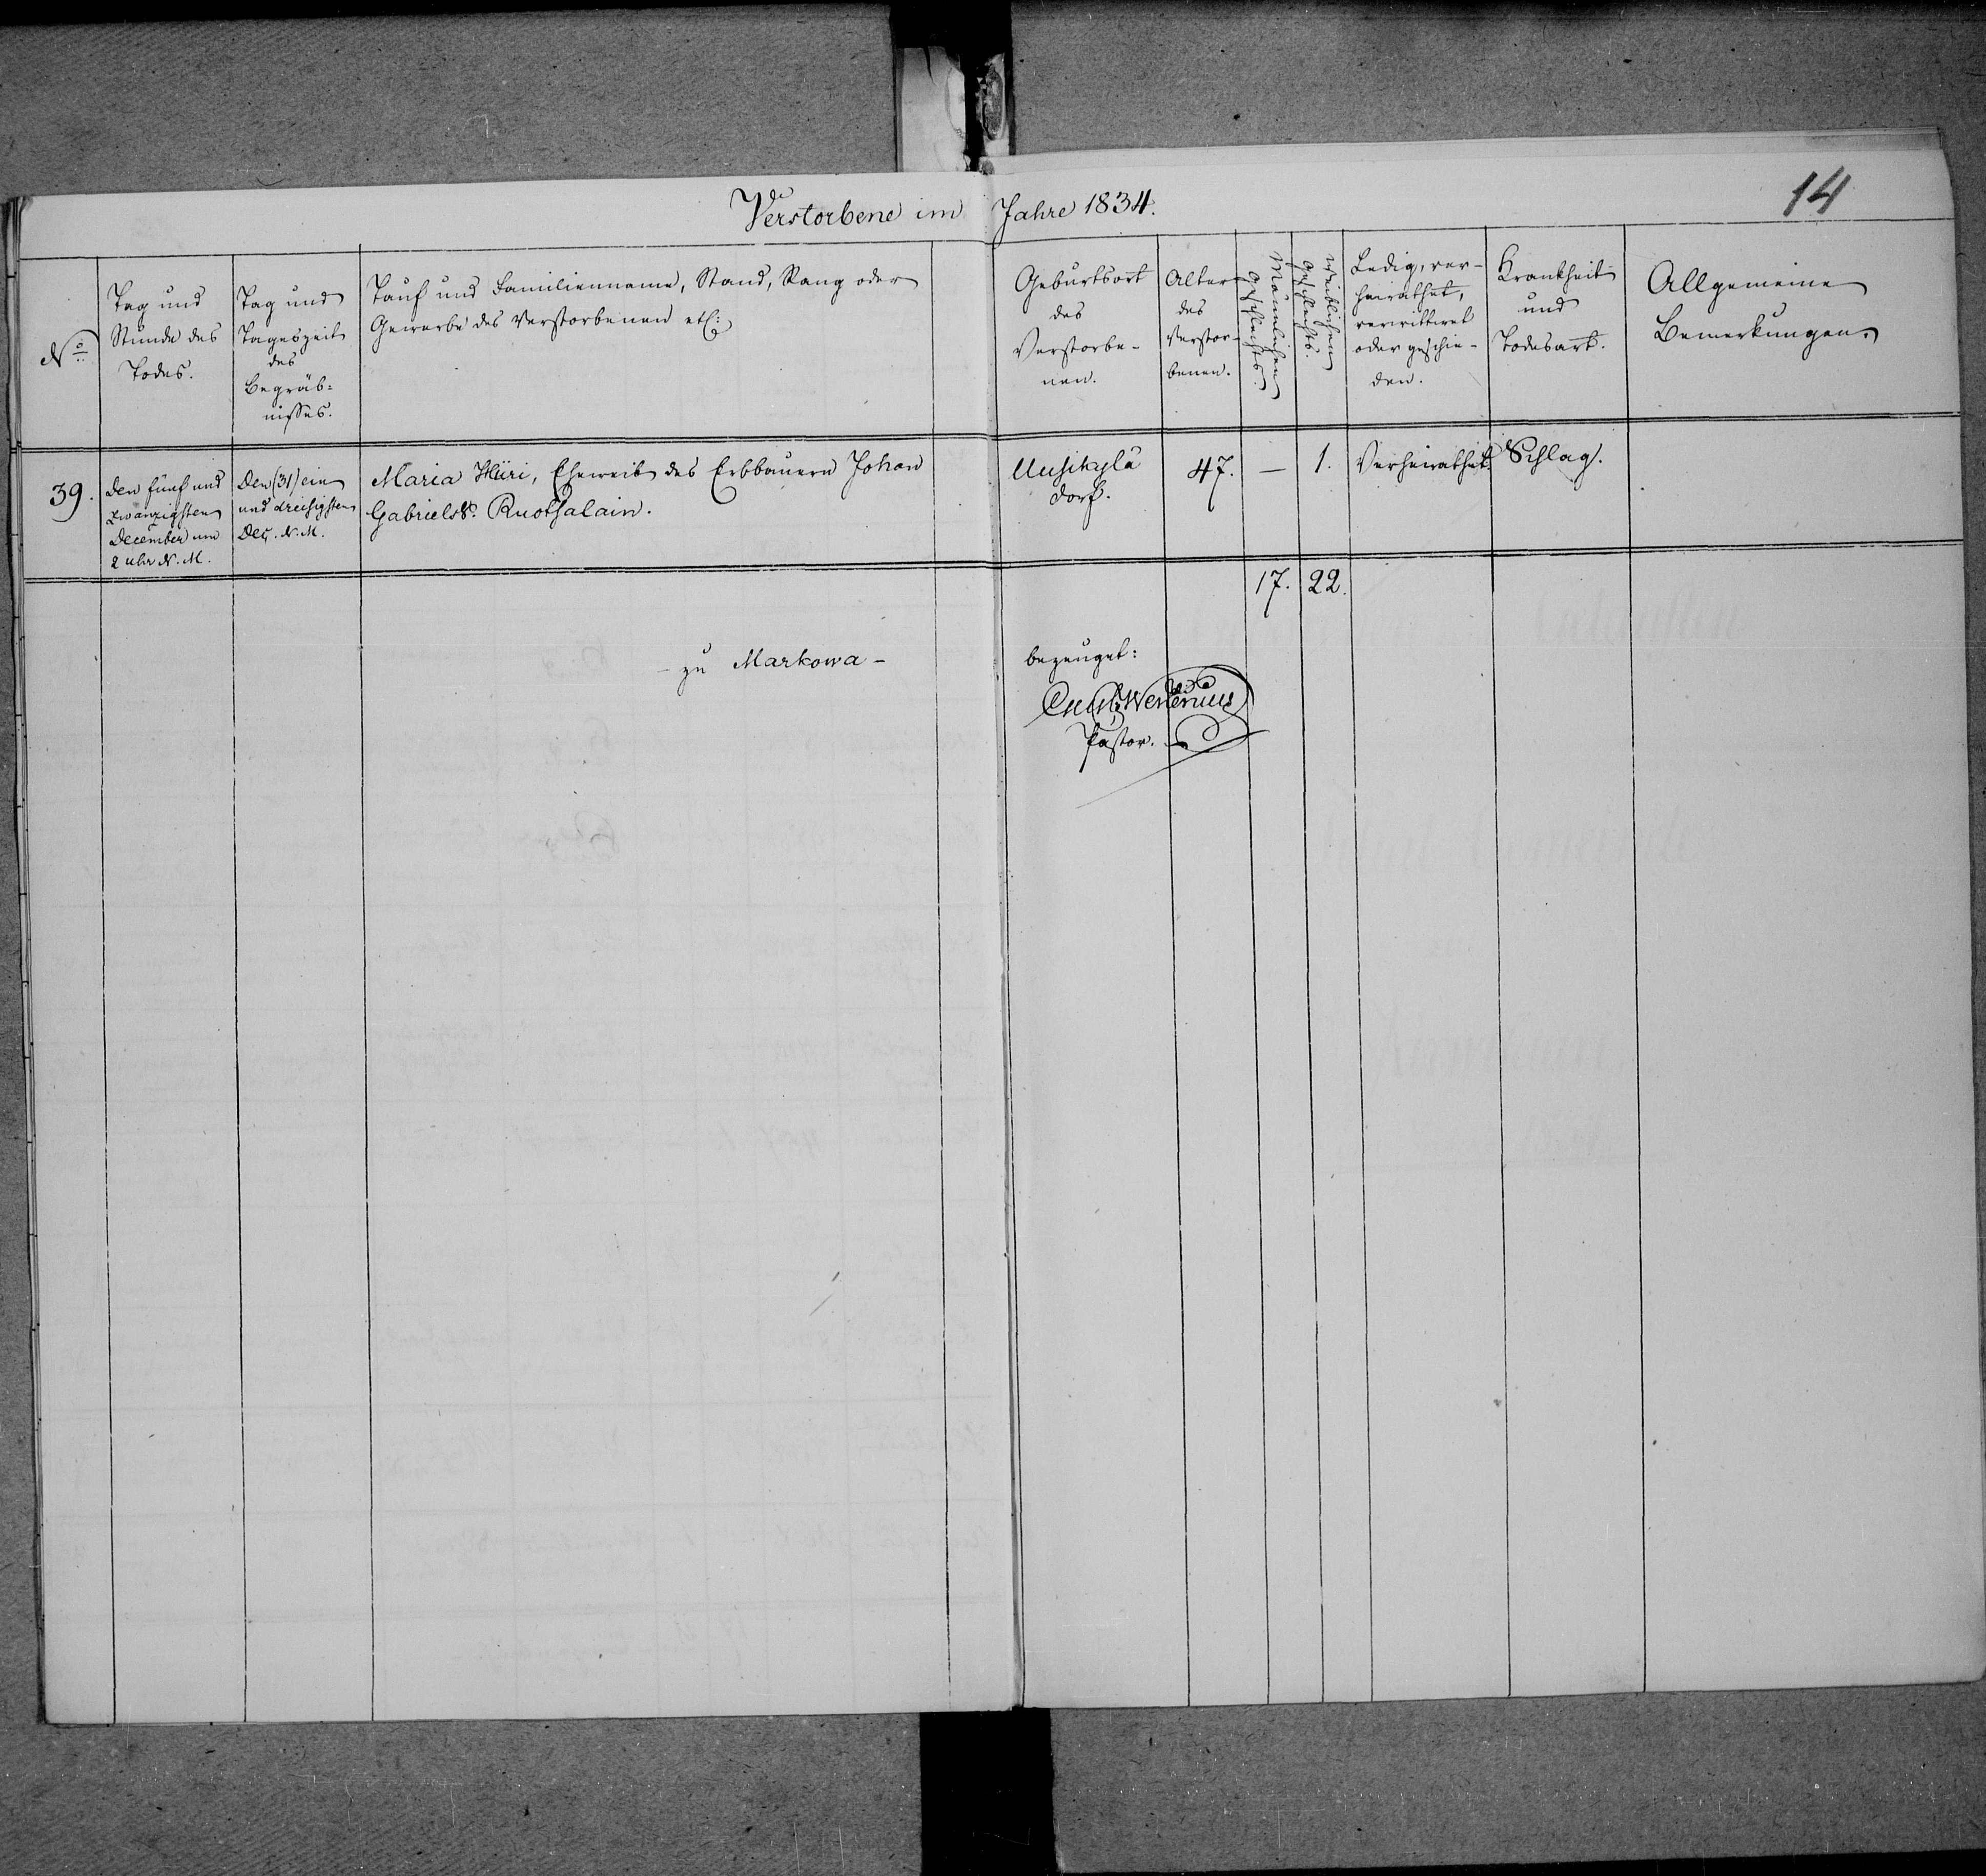 14
Verstorbene im Jahre 1834.
No
Tag und
Stunde des
Todes.
Tag und
Tageszeit
des
Begräb=
nisses.
Tauf und Familienname, Stand, Rang oder
Gewerbe des Verstorbenen etc:
Geburtsort
des
Verstorbe-
nen.
Alter
des
Verstor-
benen.
Männlichen
Geschlechts.
Weiblichen
Geschlechts.
Ledig, ver-
heirathet,
verwittwet
oder geschie-
den.
Krankheit
und
Todesart.
Allgemeine
Bemerkungen.
39.
Den fünf und
zwanzigsten
December um
2 Uhr N. M.
Den (31) ein
und dreisigsten
Dec. N. M.
Maria Hüri, Eheweib des Erbbauern Johan
Gabrielss. Ruotsalain.
Uusikylä
Dorf.
47.
—
1.
Verheirathet.
Schlag.
17. 22.
- zu Markowa -
bezeuget:
Pastor.